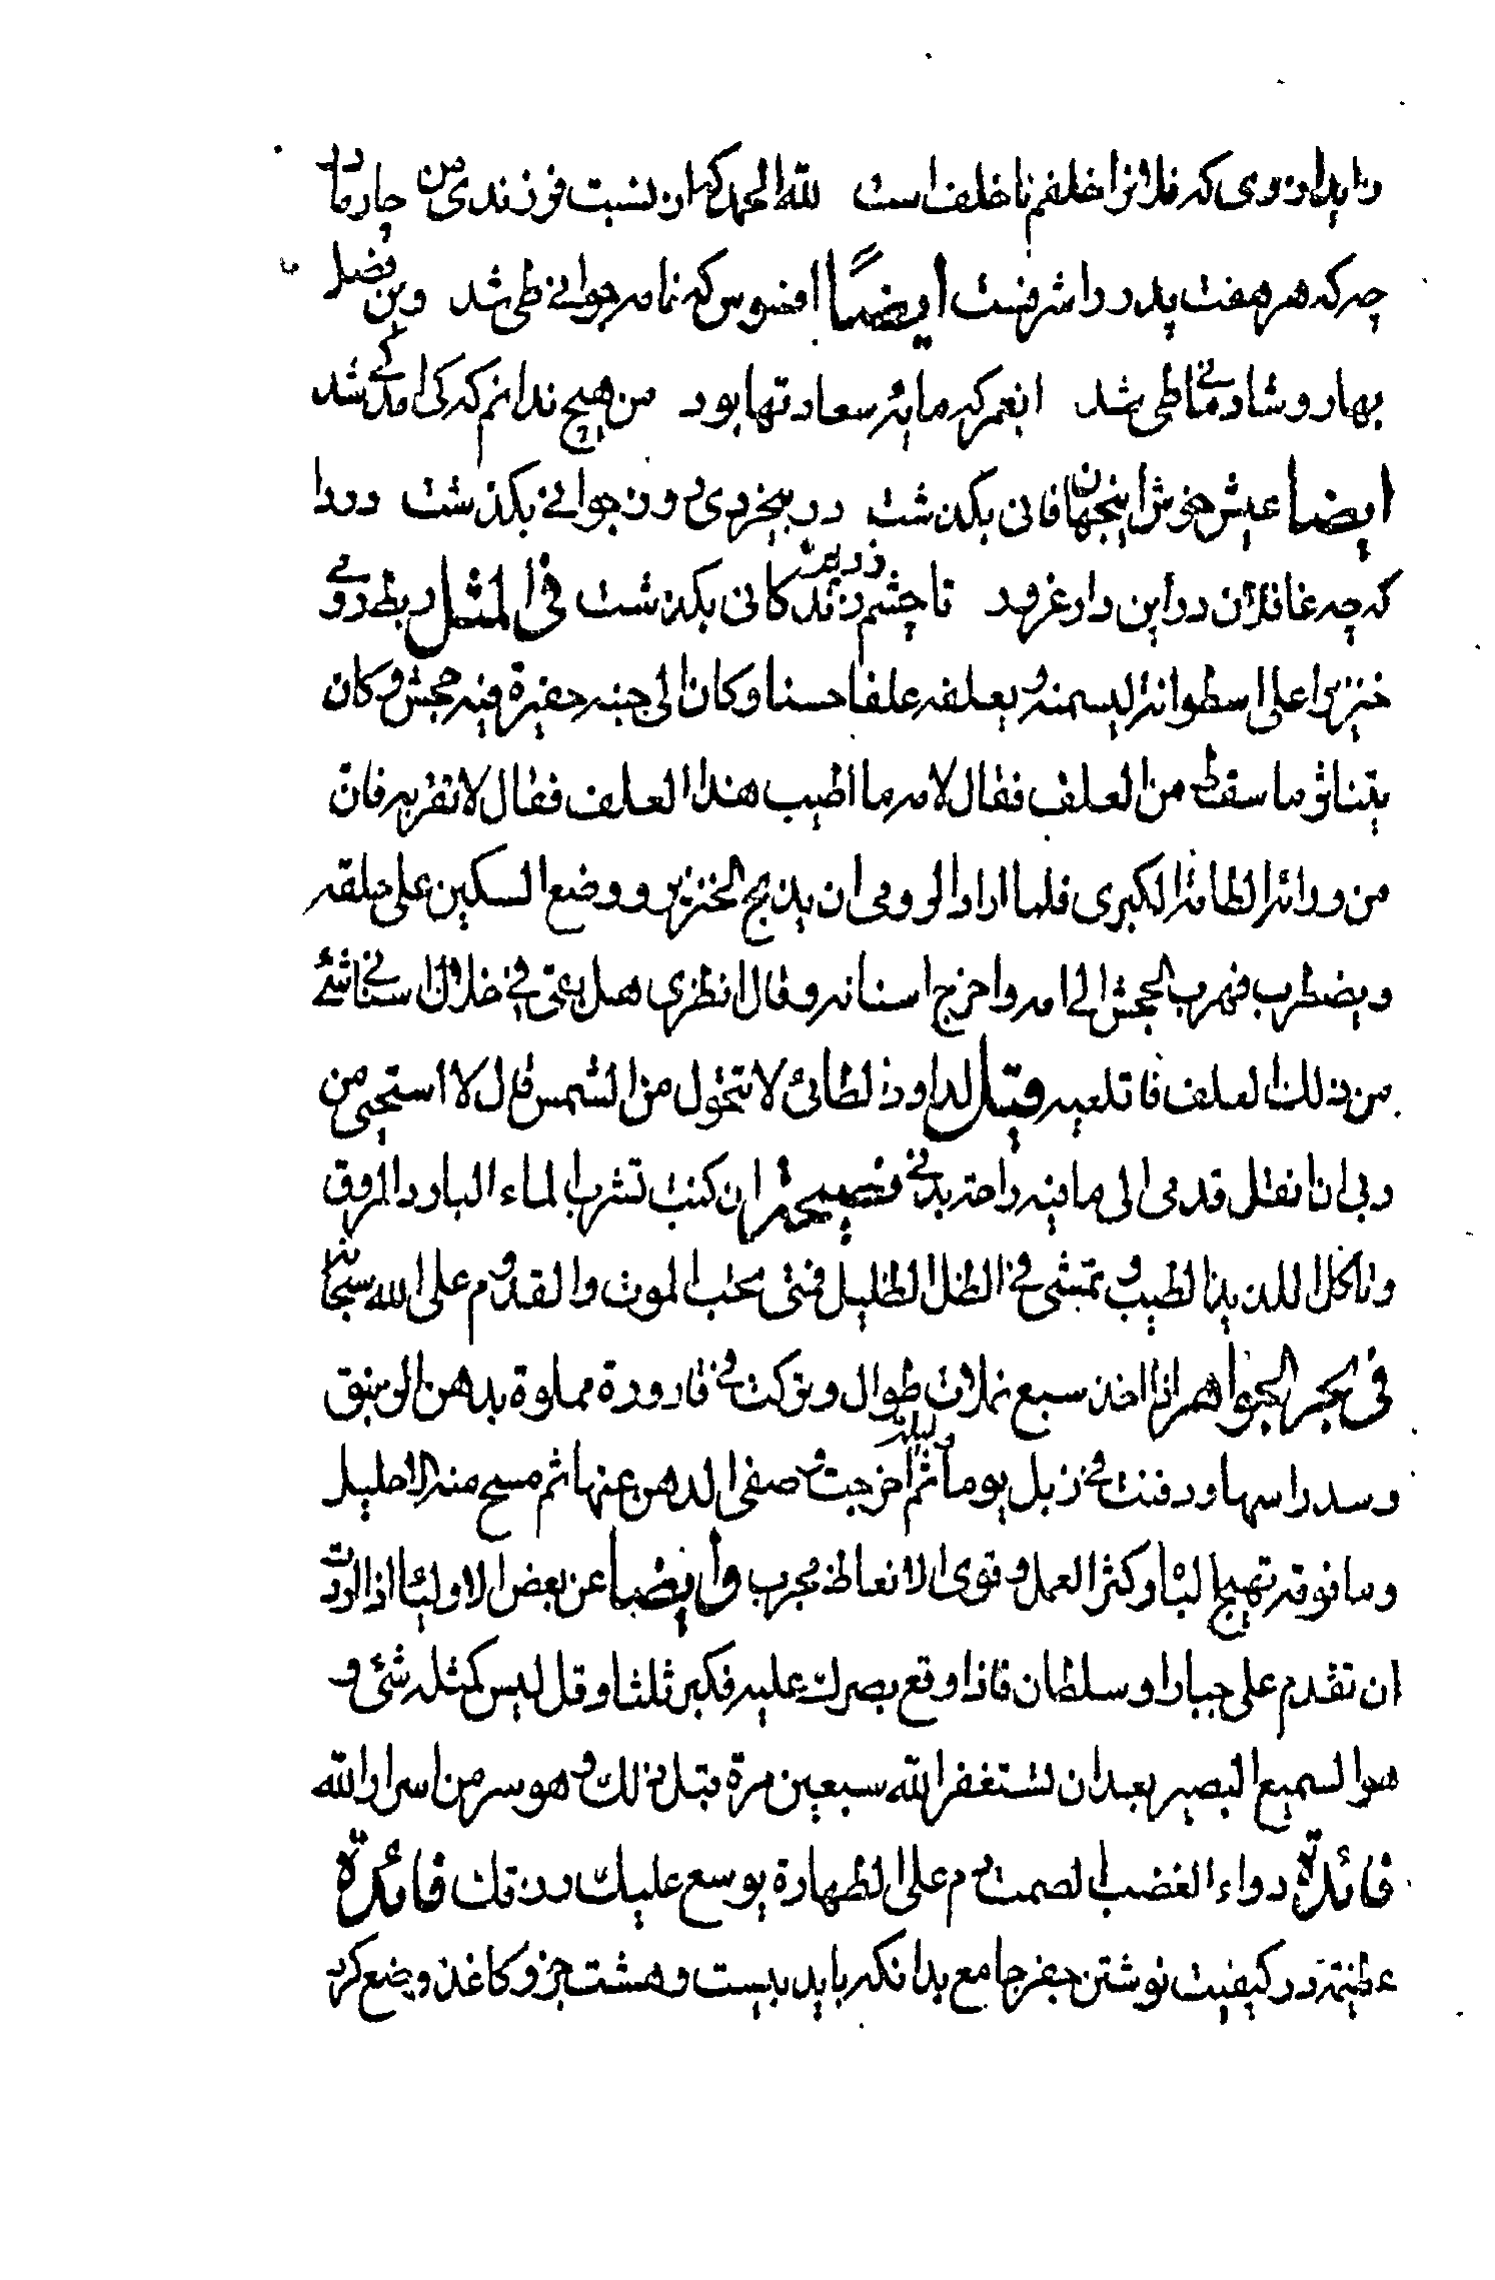 که فلانرا خلفم ناخلف است لله الحمد که از نسبت فرزندی من چار مادر
چه که هر هفت پدر را شرفست ایضًا افسوس که نامه جوانی طی شد وین فصل
بهار و شادمانی طی شد ایغمر که مایه سعادتها بود من هیچ ندانم که کی آمد کی شد
ایضا عیش خوش اینجهان فانی بگذشت در بیخردی روز جوانی بگذشت دردا
که چه غافلان در این دار غرور تا چشم زدیم زندکانی بگذشت فی المثل ربط رومی
خنزیرا علی اسطوانة لیسمنه و یعلفه علفا حسنا و کان الی جنبه حفیرة فیه جحش و کان
یتناثر ما سقط من العلف فقال لامه ما اطیب هذا العلف فقال لا تقربه فان
من ورائه الطامة الکبری فلما اراد الرومی ان یذبح الخنزیر و وضع السکین علی حلقه
و یضطرب فهرب الجحش الی امه و اخرج اسنانه و قال انظری هل بقی فی خلال اسنانی شئ
من ذلک العلف فاقلعیه قیل لداود الطائی لا تتحول من الشمس قال لا استحیی من
ربی ان انقل قدمی الی ما فیه راحة بدنی نصیحة ان کنت تشرب الماء البارد المروق
و تاکل اللذیذ الطیب و تمشی فی الظل الظلیل فمتی تحب الموت و القدوم علی الله سبحانه
فی بحر الجواهر اذا اخذ سبع نملات طوال و ترکت فی قارورة مملوة بدهن الزنبق
و سد راسها و دفنت فی زبل یوما و لیلة ثم اخرجت و صفی الدهن عنها ثم مسح منه الاحلیل
و ما فوقه تهیج الباه و کثر العمل و قوی الانعاظ مجرب و ایضا عن بعض الاولیاء اذا اردت
ان تقدم علی جبار او سلطان فاذا وقع بصرک علیه فکبر ثلثا و قل لیس کمثله شئ و
هو السمیع البصیر بعد ان تستغفر الله سبعین مرة قبل ذلک و هو سر من اسرار الله
فائدة دواء الغضب الصمت دم علی الطهارة یوسع علیک رزقک فائدة
عظیمة در کیفیت نوشتن جفر جامع بدانکه باید بیست و هشت جزو کاغذ وضع کرد